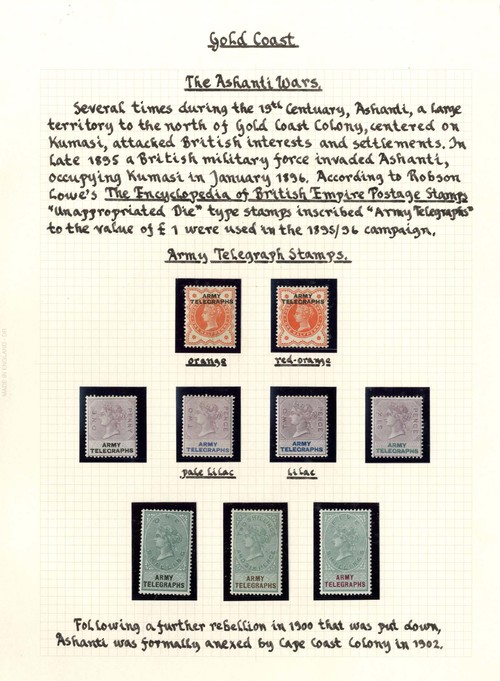 Gold Coast
The Ashanti Wars.
Several times during the 19th Centuary, Ashanti, a large
territory to the north of Gold Coast Colony, centered on
Kumasi, attacked British interests and settlements. In
late 1895 a British military force invaded Ashanti,
occupying Kumasi in January 1896. According to Robson
Lowe's The Encyclopedia of British Empire Postage Stamps
"Unappropriated Die" type stamps inscribed "Army Telegraphs"
to the value of £1 were used in the 1895/96 campaign.
Army Telegraph Stamps.
ARMY
TELEGRAPHS
ARMY
TELEGRAPHS
orange
red-orange
ARMY
TELEGRAPHS
ARMY
TELEGRAPHS
ARMY
TELEGRAPHS
ARMY
TELEGRAPHS
pale lilac
lilac
ARMY
TELEGRAPHS
ARMY
TELEGRAPHS
ARMY
TELEGRAPHS
Following a further rebellion in 1900 that was put down,
Ashanti was formally anexed by Cape Coast Colony in 1902.
MADE IN ENGLAND